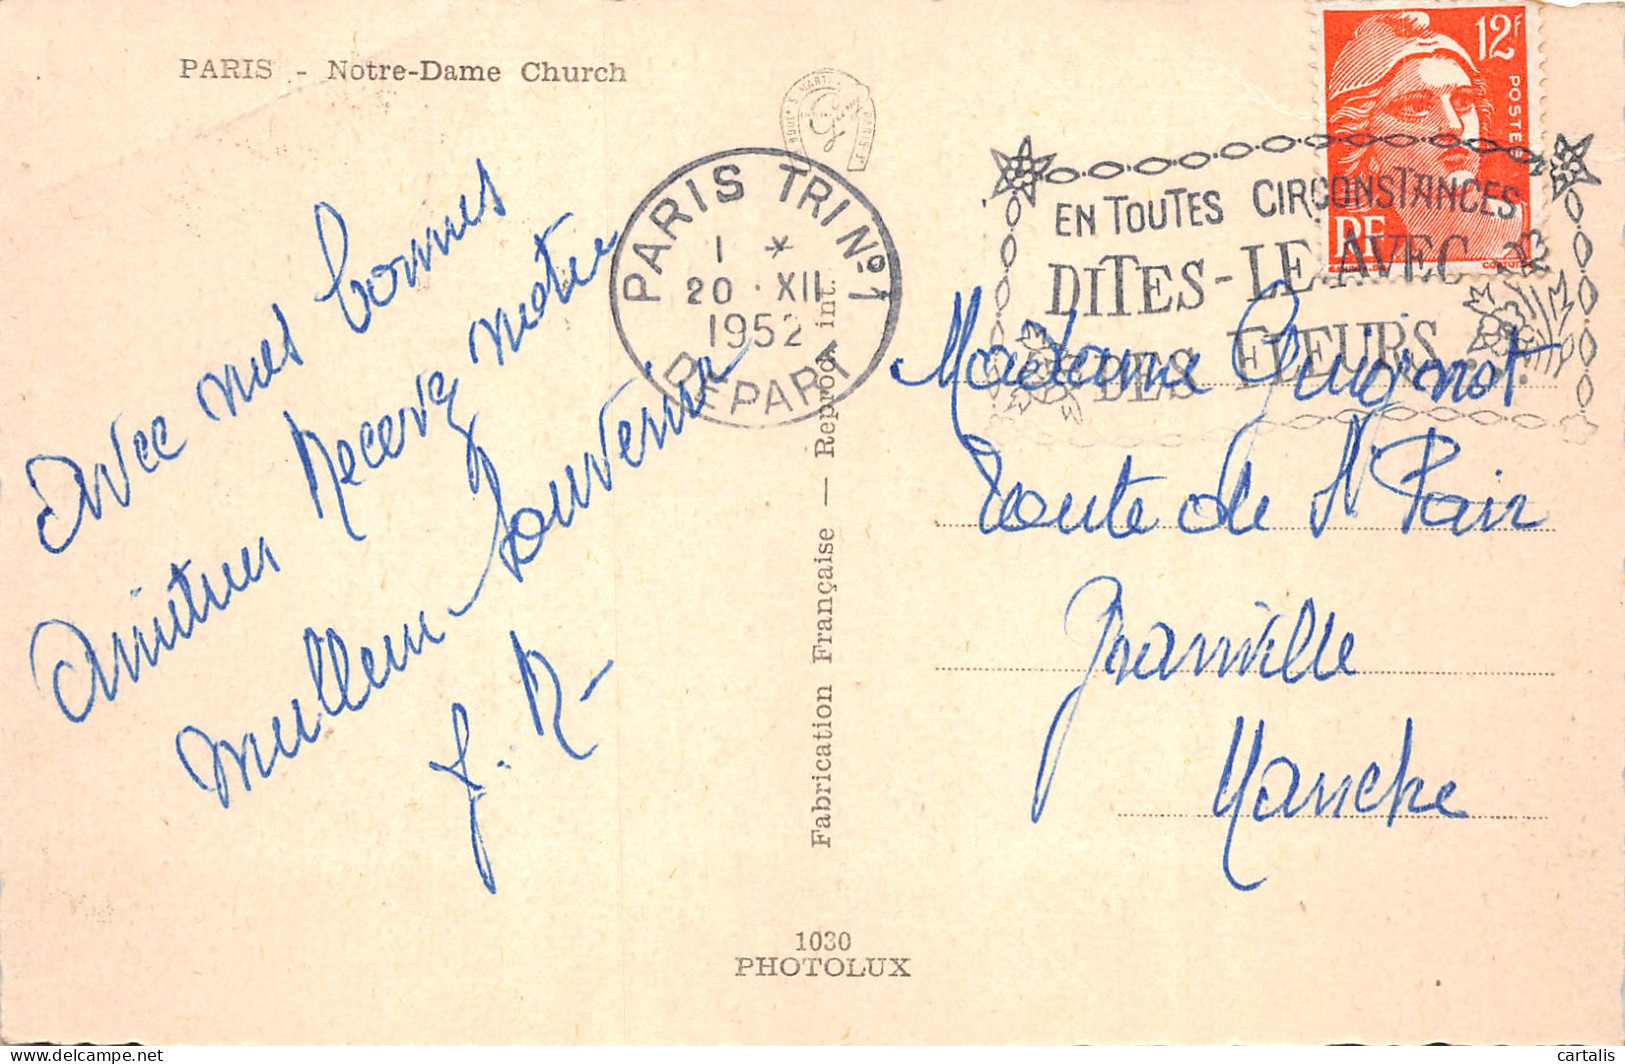 PARIS - Notre-Dame Church
Avec mes bonnes
amitiés Recevez notre
meilleur Souvenir
J. R.
PARIS TRI Nº 1
1 *
20 · XII
1952
DEPART
EN TOUTES CIRCONSTANCES
DITES-LE AVEC
DES FLEURS.
12F
POSTES
RF
Madame Guignot
Route de St Pair
Granville
Manche
Fabrication Française — Reprod. int.
1030
PHOTOLUX
delcampe.net
cartalis